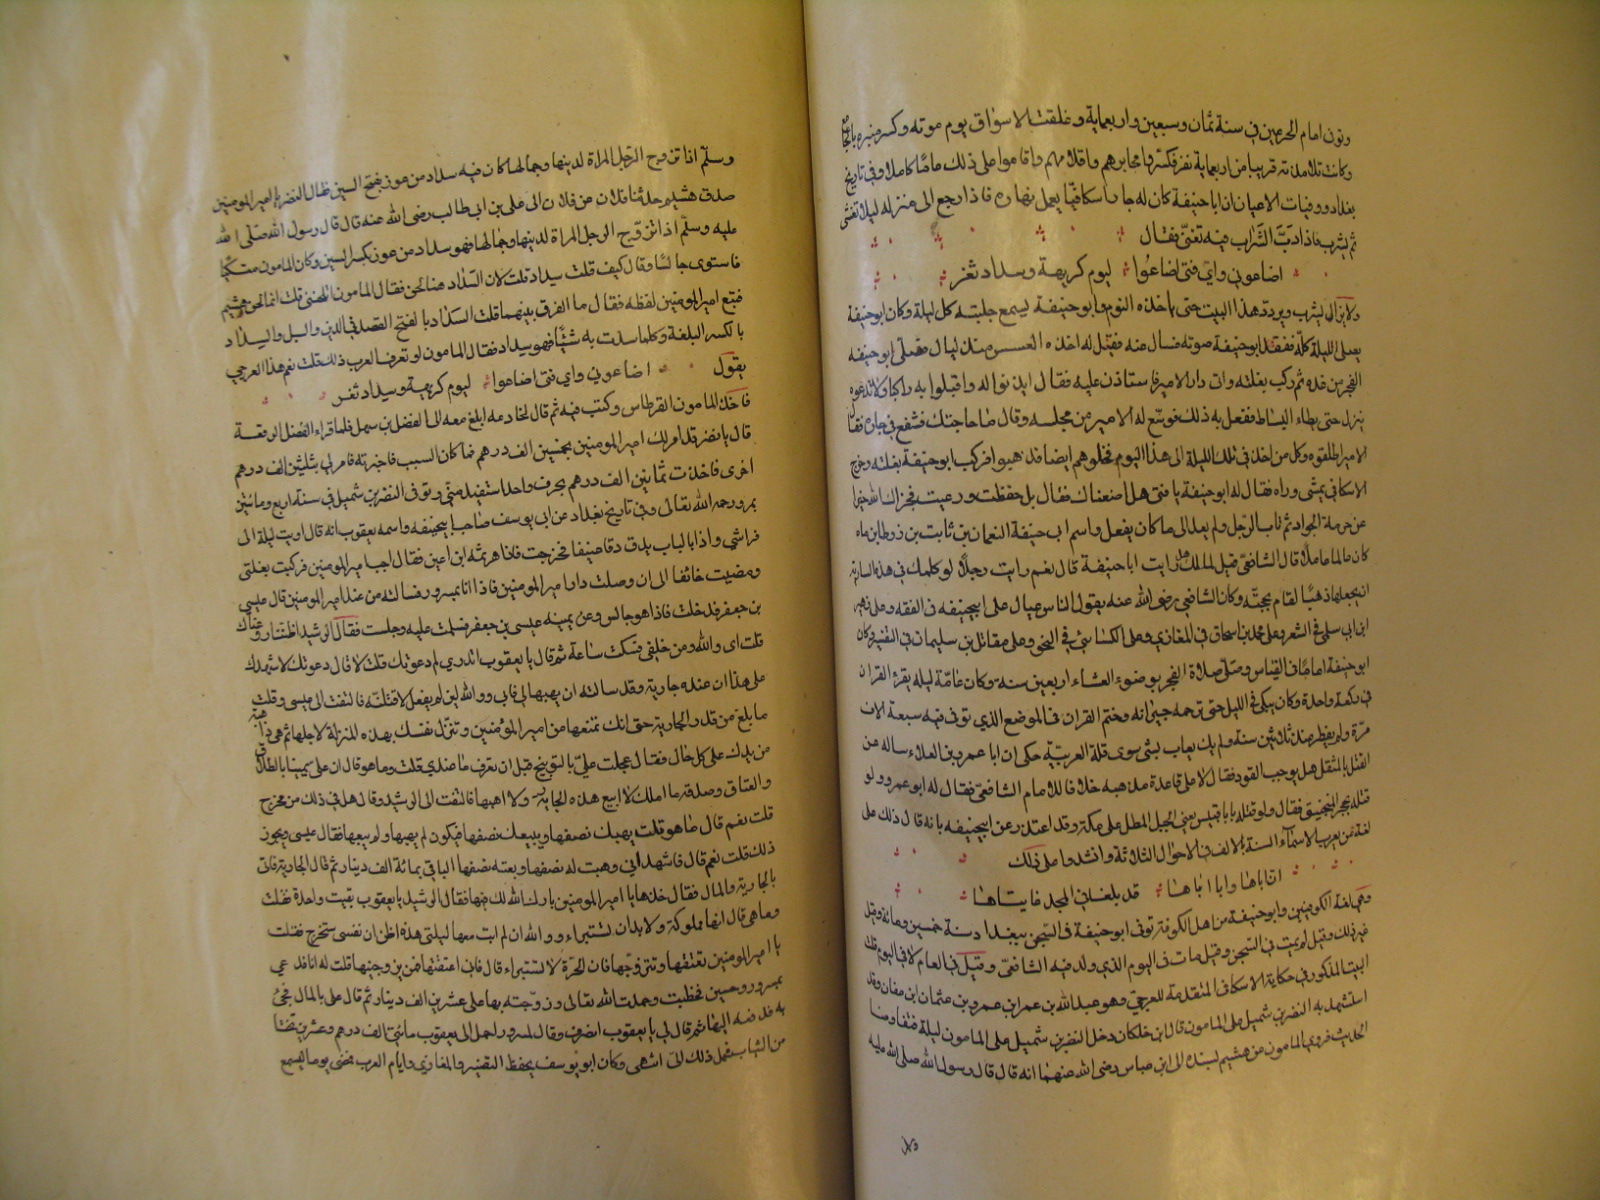 وتوفى امام الحرمين في سنة ثمان وسبعين واربعماية وغلقت الاسواق يوم موته وكسر منبره بالجامع
وكانت تلامذته قريبا من اربعماية نفر فكسروا محابرهم واقلامهم واقاموا على ذلك عاما كاملا وفي تاريخ
بغداد ووفيات الاعيان ان ابا حنيفة كان له جار اسكافيا يعمل نهاره فاذا رجع الى منزله ليلا تعشى
ثم يشرب فاذا دب الشراب فيه تغنى فقال
اضاعوني واي فتى اضاعوا ليوم كريهة وسداد ثغر
ولا يزال يشرب ويردد هذا البيت حتى ياخذه النوم وابو حنيفة يسمع جلبته كل ليلة وكان ابو حنيفة
يصلى الليلة كله ففقد ابو حنيفة صوته فسال عنه فقيل له اخذه العسس منذ ليال فصلى ابو حنيفه
الفجر من غده ثم ركب بغلته وات دار الامير فاستاذن عليه فقال ايذنوا له واقبلوا به راكبا ولا تدعوه
ينزل حتى يطاء البساط ففعل به ذلك فوسع له الامير من مجلسه وقال ما حاجتك فشفع في جاره فقال
الامير اطلقوه وكل من اخذ في تلك الليلة الى هذا اليوم فخلوهم ايضا فذهبوا فركب ابو حنيفة بغلته وخرج
الاسكافي يمشي وراه فقال له ابو حنيفة يا فتى هل اضعناك فقال بل حفظت ورعيت فجزاك الله خيرا
عن حرمة الجوار ثم تاب الرجل ولم يعد الى ما كان يفعل واسم ابي حنيفة النعمان بن ثابت بن زوطا بن ماه
كان عالما عاملا قال الشافعي قيل لمالك هل رايت ابا حنيفة قال نعم رايت رجلا لو كلمك في هذه السارية
ان يجعلها ذهبا لقام بحجته وكان الشافعي رضي الله عنه يقول الناس عيال على ابي حنيفه في الفقه وعلى زهير
ابن ابي سلمى في الشعر وعلى محمد بن اسحاق في المغازي وعلى الكسائي في النحو وعلى مقاتل بن سليمان في التفسير وكان
ابو حنيفة اماما في القياس وصلى صلاة الفجر بوضوء العشاء اربعين سنة وكان عامة ليله يقرء القران
في ركعة واحدة وكان يبكى في الليل حتى ترحمه جيرانه وختم القران في الموضع الذي توفى فيه سبعة الاف
مرة ولم يفطر منذ ثلاثين سنة ولم يك يعاب بشى سوى قلة العربية حكى ان ابا عمرو بن العلاء ساله عن
القتل بالمثقل هل يوجب القود فقال لا على قاعدة مذهبه خلافا للامام الشافعي فقال له ابو عمرو ولو
قتله بحجر المنجنيق فقال ولو قتله بابا قبيس يعني الجبل المطل على مكة وقد اعتذر عن ابي حنيفه بانه قال ذلك على
لغة من يعرب الاسماء الستة بالالف في الاحوال الثلاثة وانشدوا على ذلك
ان اباها وابا اباها قد بلغا في المجد غايتاها
وهي لغة الكوفيين وابو حنيفة من اهل الكوفة توفى ابو حنيفة في السجن ببغداد سنة خمسين ومائة وقيل
غير ذلك وقيل لم يمت في السجن وقيل مات في اليوم الذي ولد فيه الشافعي وقيل في العام لا في اليوم
البيت المذكور في حكاية الاسكافي المتقدمة للعرجي وهو عبد الله بن عمر ابن عمرو بن عثمان ابن عفان وقد
استشهد به النضر بن شميل على المامون قال ابن خلكان دخل النضر بن شميل على المامون ليلة فتفاوضا
الحديث فروى المامون عن هشيم بسنده الى ابن عباس رضي الله عنهما انه قال قال رسول الله صلى الله عليه
وسلم اذا تزوج الرجل المراة لدينها وجمالها كان فيه سداد من عوز بفتح السين فقال النضر يا امير المومنين
صدق هشيم حدثنا فلان عن فلان الى على بن ابي طالب رضي الله عنه قال قال رسول الله صلى الله
عليه وسلم اذا تزوج الرجل المراة لدينها وجمالها فهو سداد من عوز بكسر السين وكان المامون متكئا
فاستوى جالسا وقال كيف قلت سداد قلت لان السداد هنا لحن فقال المامون اتلحنني قلت انما لحن هشيم
فتبع امير المومنين لفظه فقال ما الفرق بينهما قلت السداد بالفتح القصد في الدين والسبل والسداد
بالكسر البلغة وكلما سددت به شيئا فهو سداد فقال المامون او تعرف العرب ذلك قلت نعم هذا العرجي
يقول اضاعوني واي فتى اضاعوا ليوم كريهة وسداد ثغر
فاخذ المامون القرطاس وكتب فيه ثم قال لخادمه ابلغ معه الى الفضل بن سهل فلما قراء الفضل الرقعة
قال يا نضر قد امر لك امير المومنين بخمسين الف درهم فما كان السبب فاخبرته فامر لي بثلثين الف درهم
اخرى فاخذت ثمانين الف درهم بحرف واحد استفيد مني وتوفى النضر بن شميل في سنة اربع ومائتين
بمرو رحمه الله تعالى وفي تاريخ بغداد عن ابي يوسف صاحب ابي حنيفه واسمه يعقوب انه قال اويت ليلة الى
فراشي واذا بالباب يدق دقا عنيفا فخرجت فاذا هرثمة ابن اعين فقال اجب امير المومنين فركبت بغلتي
ومضيت خائفا الى ان وصلت دار امير المومنين فاذا انا بمسرور فسالته من عند امير المومنين قال عيسى
بن جعفر فدخلت فاذا هو جالس وعن يمينه عيسى بن جعفر فسلمت عليه وجلست فقال الرشيد اظننا روعناك
قلت اى والله ومن خلفي فسكت ساعة ثم قال يا يعقوب اتدري لم دعوتك قلت لا قال دعوتك لاشهدك
على هذا ان عنده جارية وقد سالته ان يهبها لي فابى ووالله لئن لم يفعل لاقتلنه فالتفت الى عيسى وقلت
ما بلغ من قدر الجارية حتى انك تمنعها من امير المؤمنين وتنزل نفسك بهذه المنزلة لاجلها ثم هي ذاهبة
من يدك على كل حال فقال عجلت علي بالتوبيخ قبل ان تعرف ما عندي قلت وما هو قال ان على يمينا بالطلاق
والعتاق وصدقة ما املك لا ابيع هذه الجارية ولا اهبها فالتفت الى الرشيد وقال هل في ذلك من مخرج
قلت نعم قال ما هو قلت يهبك نصفها ويبيعك نصفها فيكون لم يهبها ولم يبعها فقال عيسى ويجوز
ذلك قلت نعم قال فاشهد اني وهبت له نصفها وبعته نصفها الباقي بمائة الف دينار ثم قال الجارية فاتى
بالجارية والمال فقال خذها يا امير المومنين بارك الله لك فيها فقال الرشيد يا يعقوب بقيت واحدة فقلت
وما هي قال انها مملوكة ولا بد ان تستبراء ووالله ان لم ابت معها ليلتي هذه اظن ان نفسي ستخرج فقلت
يا امير المومنين تعتقها وتتزوجها فان الحرة لا تستبراء قال فاني اعتقتها فمن يزوجنيها قلت له انا فدعي
بمسرور وحسين فخطبت وحمدت الله تعالى وزوجته بها على عشرين الف دينار ثم قال علي بالمال فجئ
به فدفعه اليها ثم قال لي يا يعقوب انصرف وقال لمسرور احمل الى يعقوب مائتي الف درهم وعشرين تختا
من الثياب فحمل ذلك الى انتهى وكان ابو يوسف يحفظ التفسير والمغازي وايام العرب فمضى يوما ليسمع